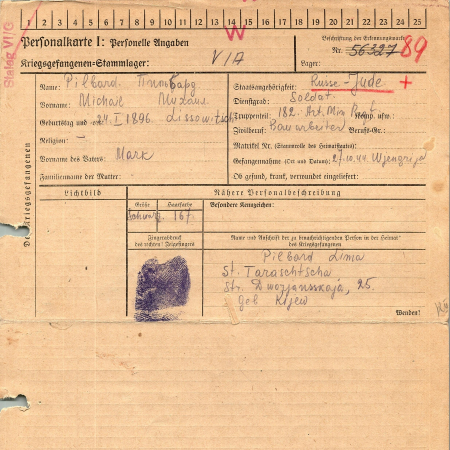 1 2 3 4 5 6 7 8 9 10 11 12 13 14 15 16 17 18 19 20 21 22 23 24 25
Stalag VI/G
W
Personalkarte I: Personelle Angaben
Beschriftung der Erkennungsmarke
Nr. 56327 89
Kriegsgefangenen-Stammlager: VIA
Lager:
Des Kriegsgefangenen
Name: Pilbard Пильбард
Staatsangehörigkeit: Russe - Jude +
Vorname: Michail Михаил
Dienstgrad: Soldat
Geburtstag und -ort 24. I 1896. Lissowitsch
Truppenteil: 182. Art. Min Komp. usw.:
Religion:
Zivilberuf: Bauarbeiter Berufs-Gr.:
Vorname des Vaters: Mark
Matrikel Nr. (Stammrolle des Heimatstaates):
Gefangennahme (Ort und Datum): 27.10.44.
Familienname der Mutter:
Ob gesund, krank, verwundet eingeliefert:
Lichtbild
Nähere Personalbeschreibung
Größe
Haarfarbe
Besondere Kennzeichen:
schwarz 167.
Fingerabdruck
des rechten! Zeigefingers
Name und Anschrift der zu benachrichtigenden Person in der Heimat
des Kriegsgefangenen
Pilbard Lima
St. Taraschtscha
Str. Dworjansskaja, 25.
geb Kijew
Wenden!